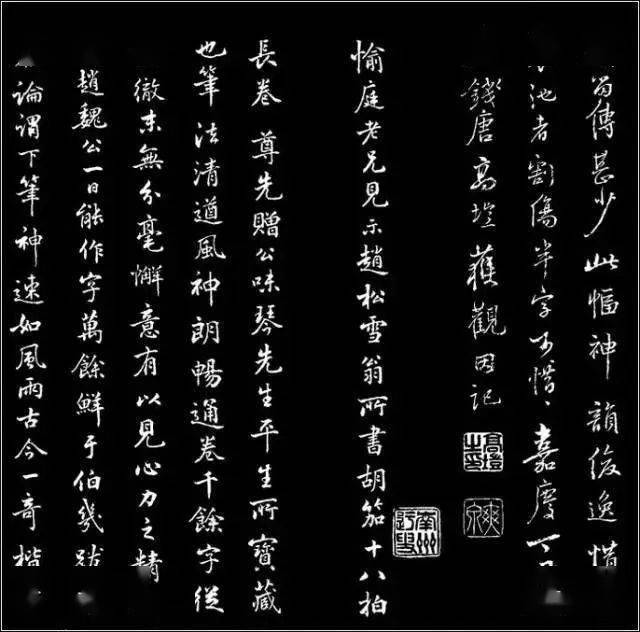 翁傳甚少此幅神韻俊逸惜
池者割傷半字可惜〻嘉慶
錢唐高塏獲觀因記
高塏之印
爽泉
愉庭老兄見示趙松雪翁所書胡笳十八拍
長卷尊先贈公味琴先生平生所寶藏
也筆法清遒風神朗暢通卷千餘字從
徹末無分毫懈意有以見心力之精
趙魏公一日能作字萬餘鮮于伯幾跋
論謂下筆神速如風雨古今一奇楷